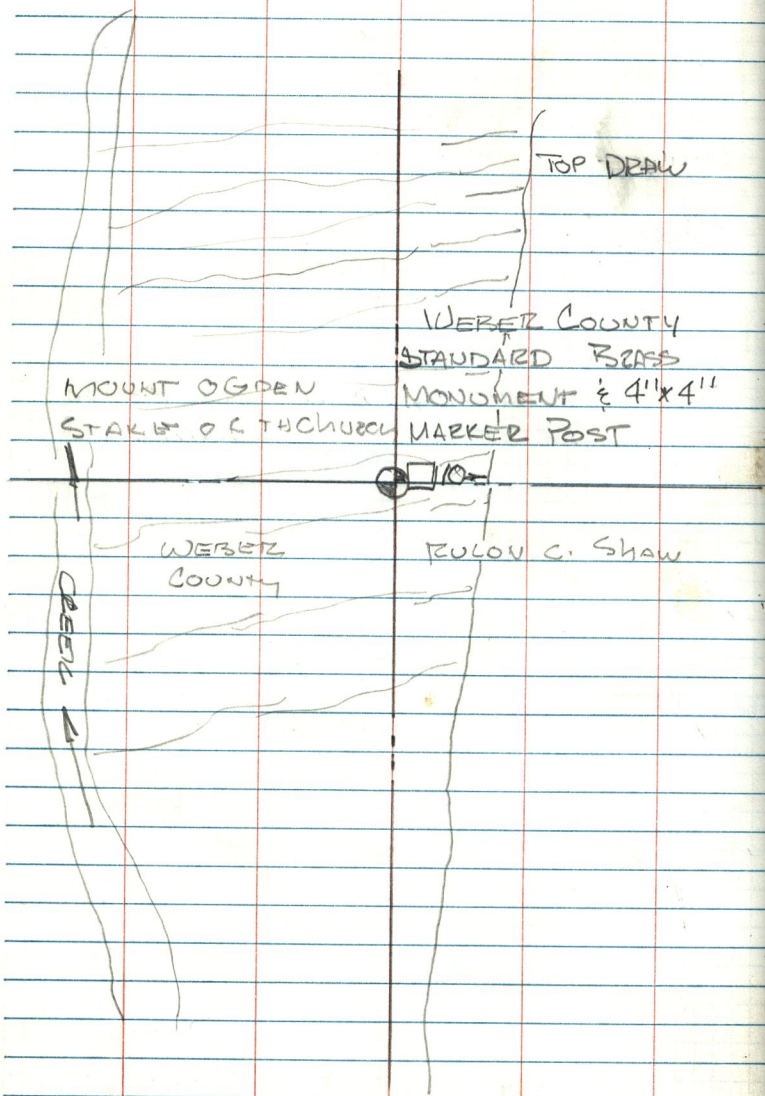 TOP DRAW
WEBER COUNTY
STANDARD BRASS
MONUMENT & 4"x4"
MARKER POST
MOUNT OGDEN
STAKE OF THCHURCH
10
WEBER
COUNTY
RULON C. SHAW
CREEK